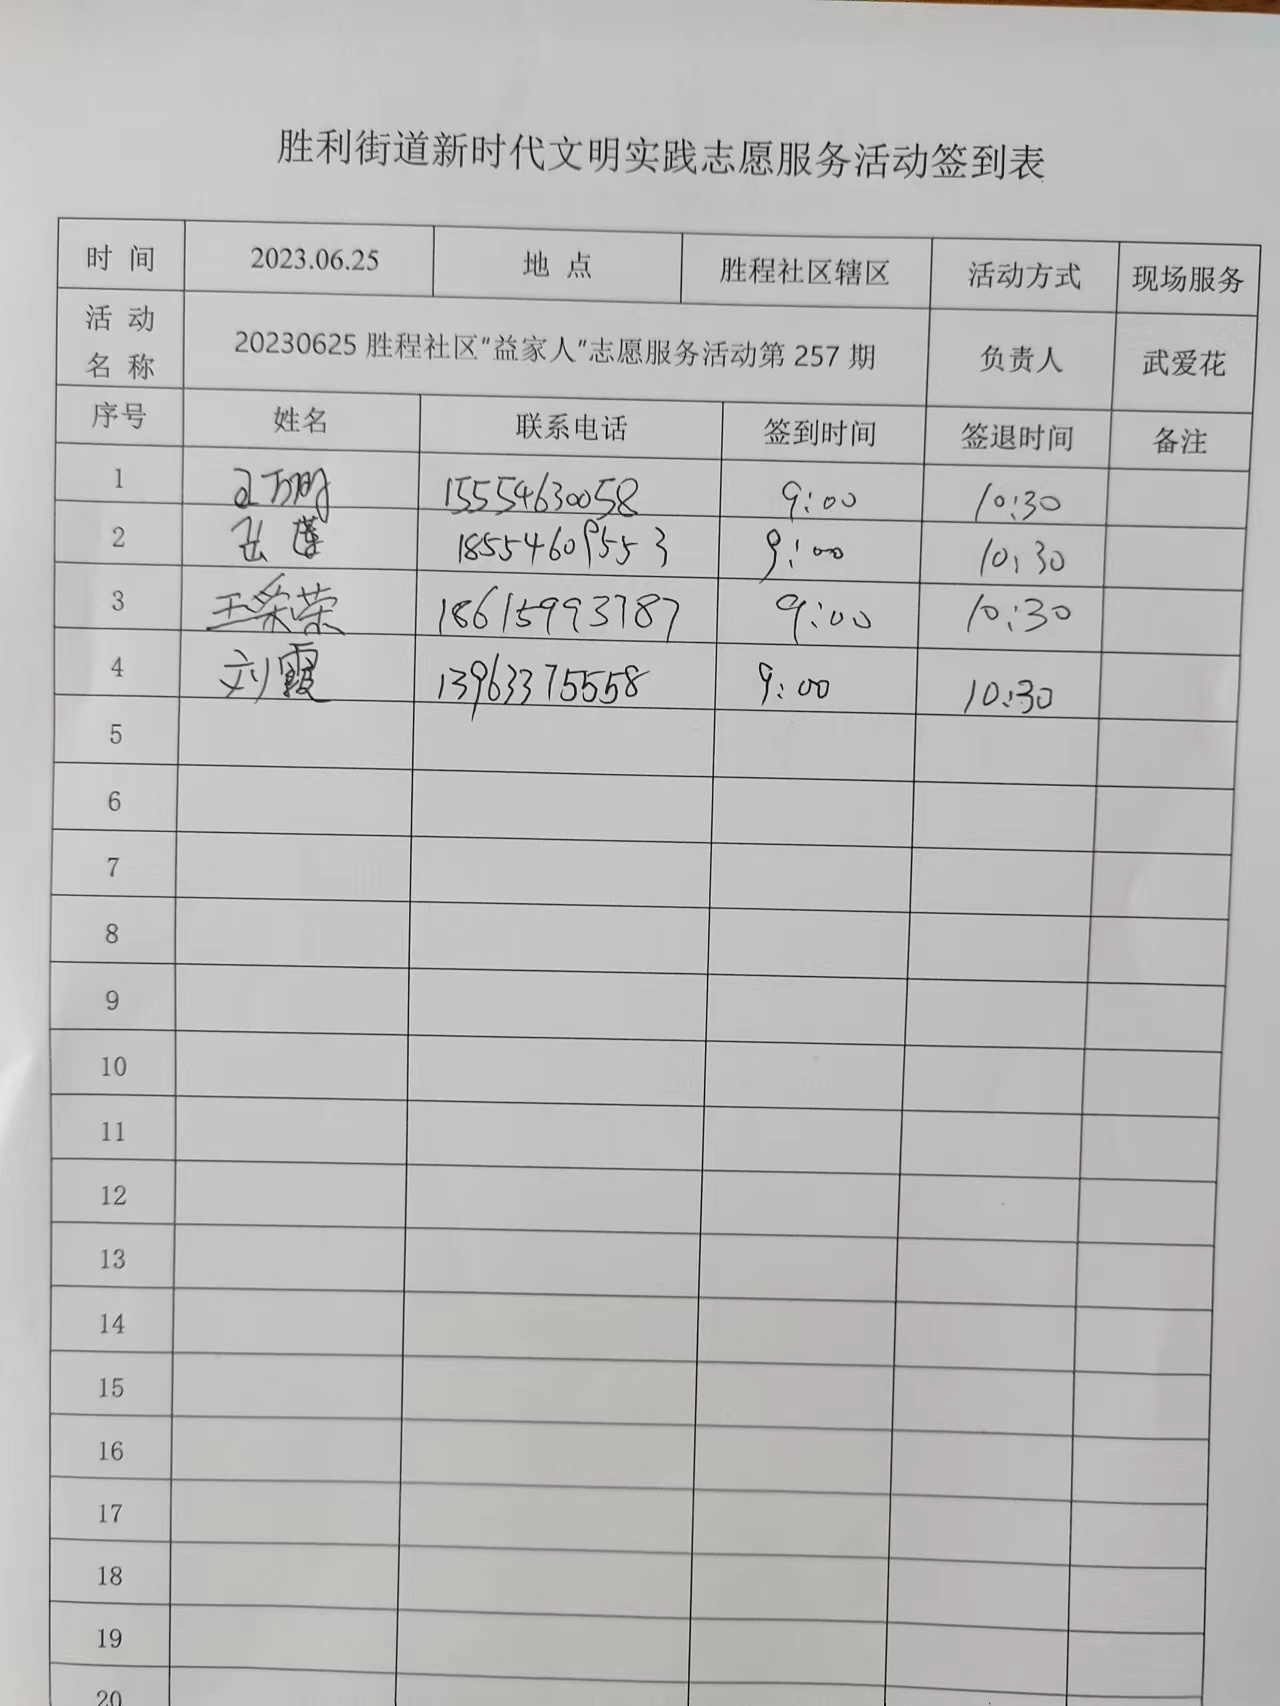 胜利街道新时代文明实践志愿服务活动签到表
时 间 2023.06.25 地 点 胜程社区辖区 活动方式 现场服务
活 动 名 称 20230625 胜程社区“益家人”志愿服务活动第 257 期 负责人 武爱花
序号 姓名 联系电话 签到时间 签退时间 备注
1 15554630058 9:00 10:30
2 18554609553 9:00 10:30
3 王荣荣 18615993787 9:00 10:30
4 刘霞 13963375558 9:00 10:30
5
6
7
8
9
10
11
12
13
14
15
16
17
18
19
20